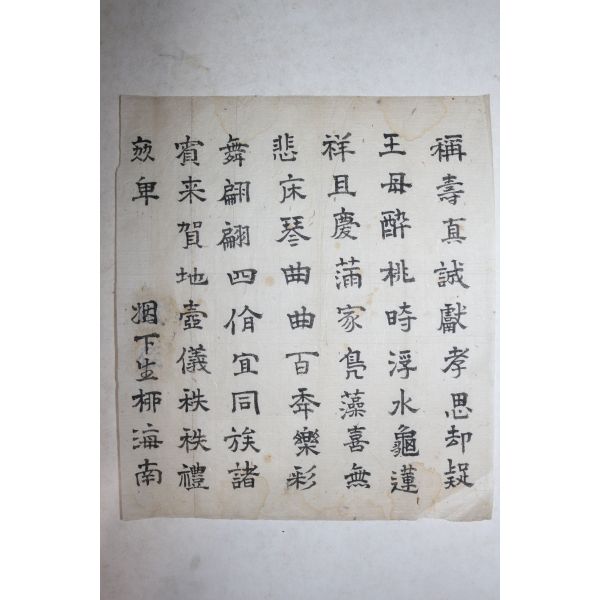 稱壽真誠獻孝思却疑
王母醉桃時浮水龜蓮
祥且慶滿家鳧藻喜無
悲床琴曲曲百秊樂彩
舞翩翩四侑宜同族諸
賓来賀地壺儀秩秩禮
效卑 姻下生柳海南